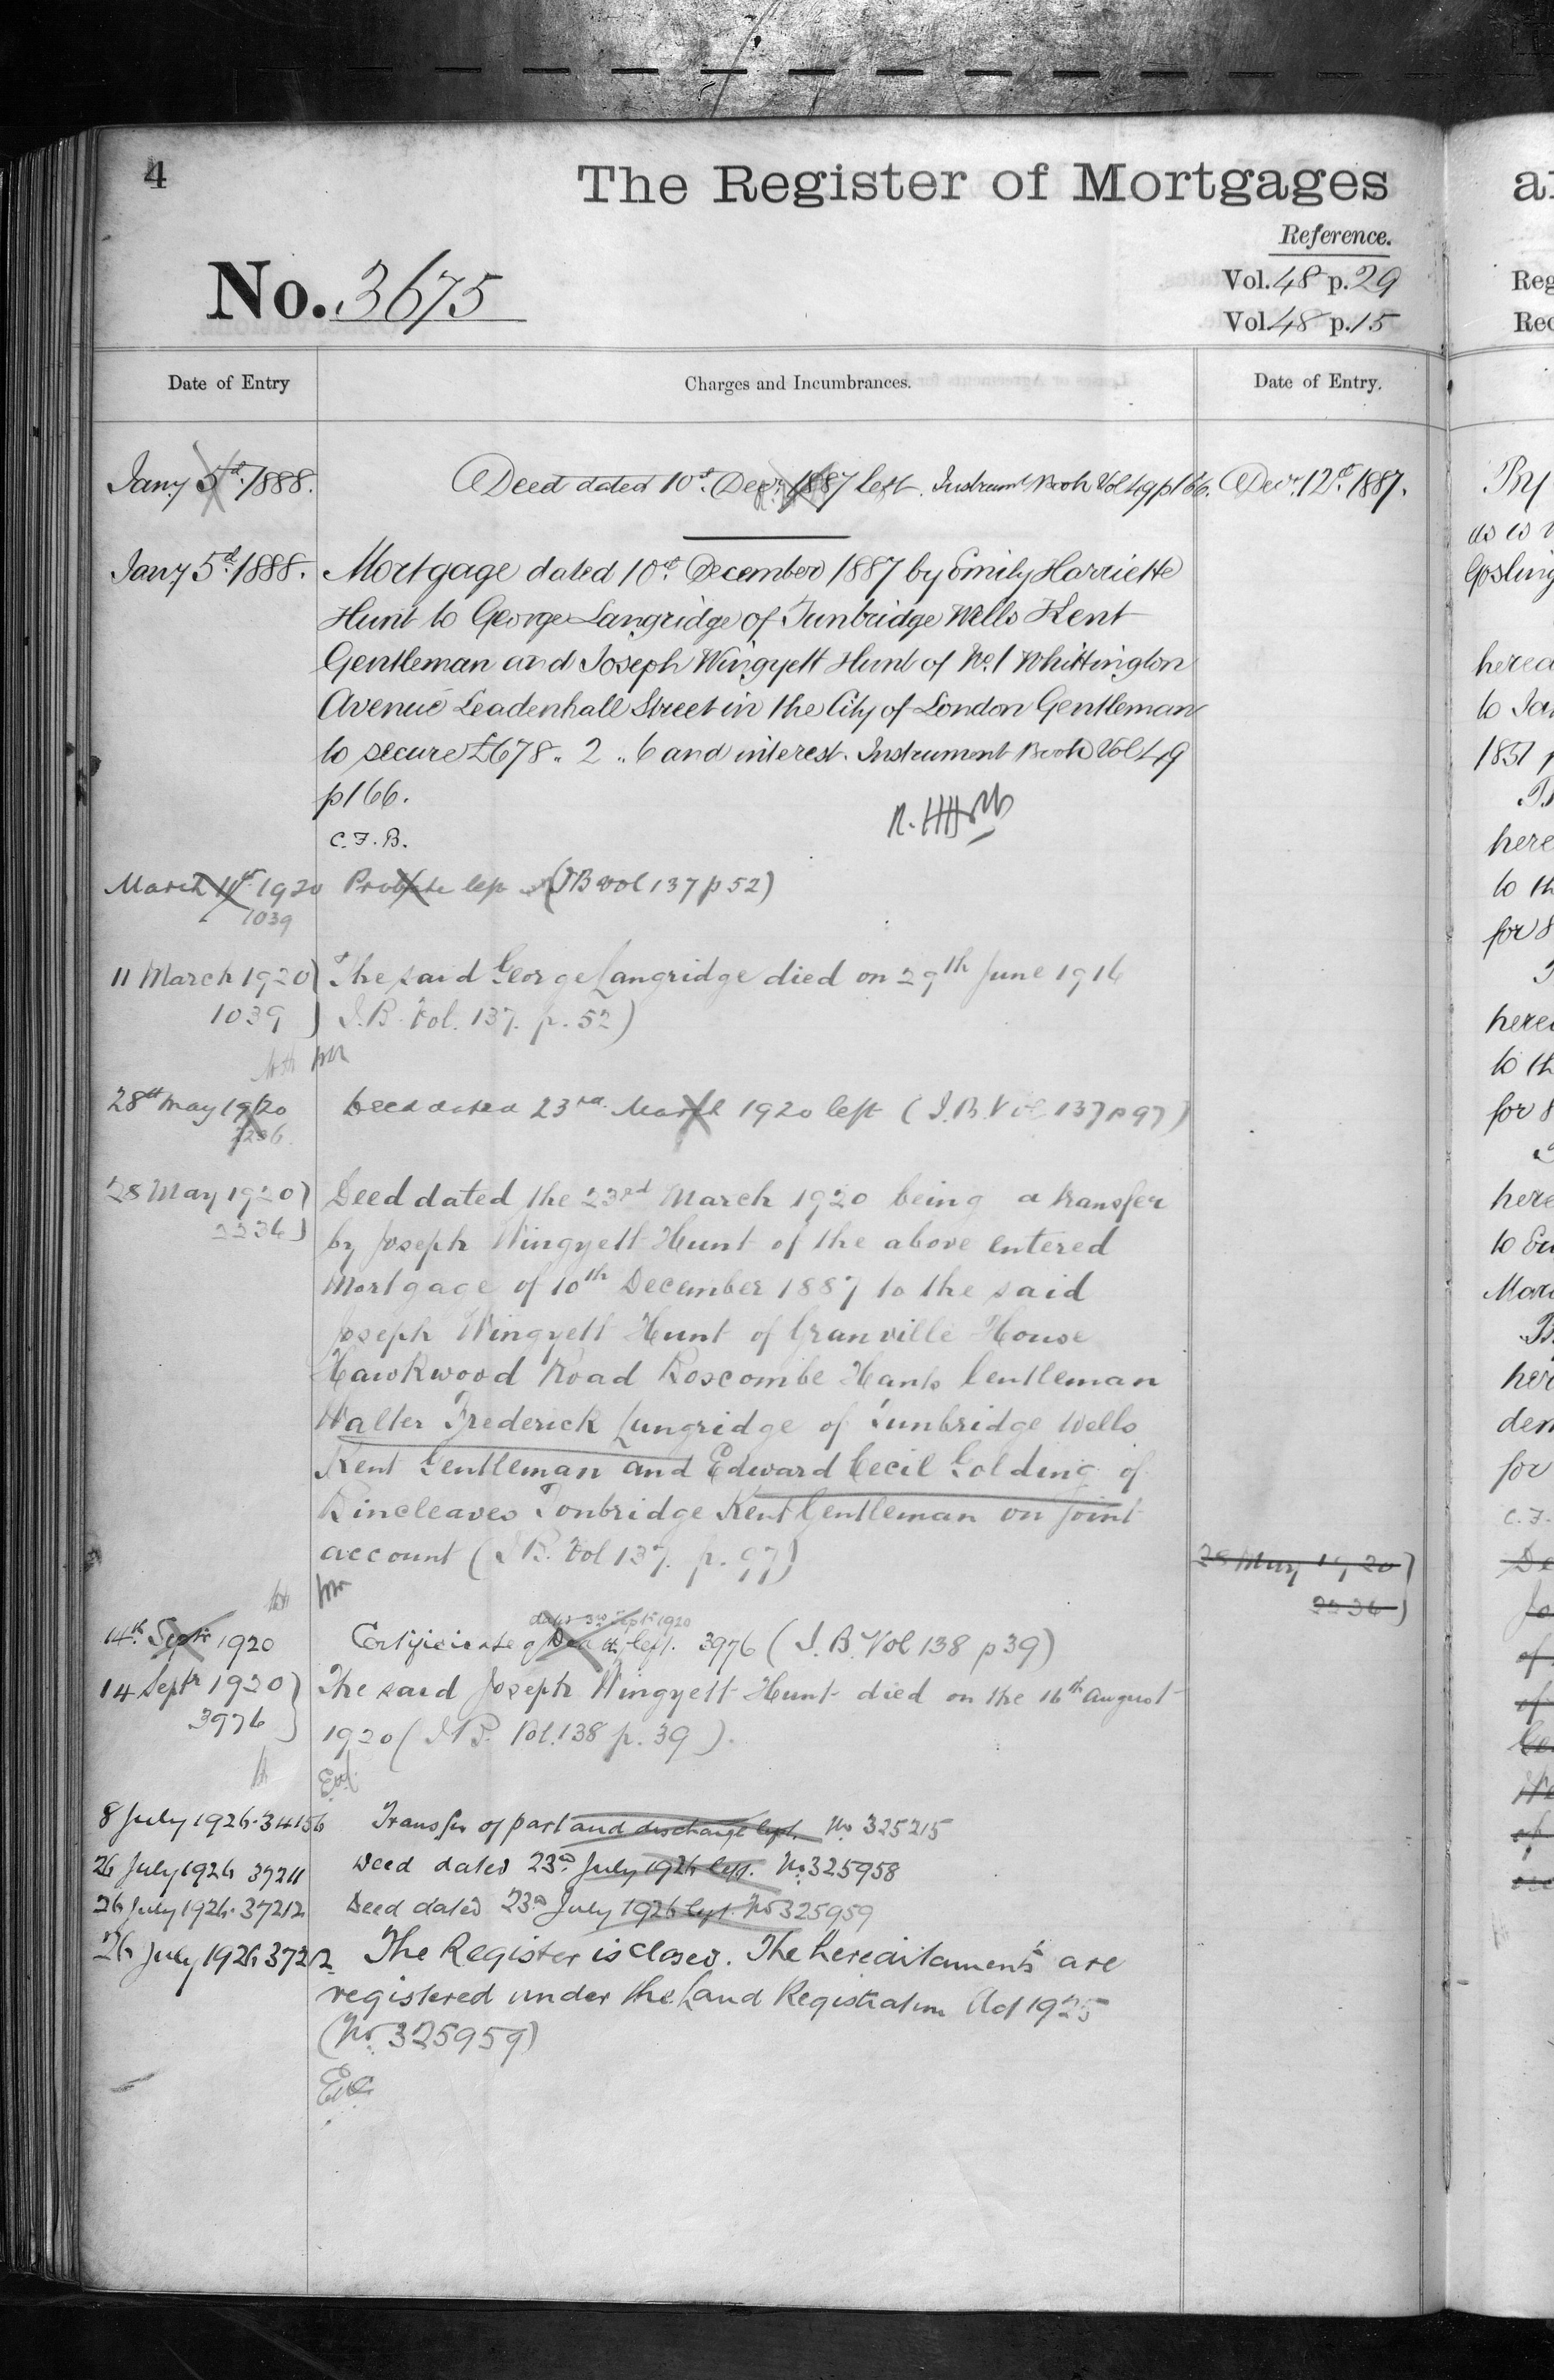 4
The Register of Mortgages
Reference.
No. 3675
Vol. 48 p. 29
Vol. 48 p. 15
Date of Entry
Charges and Incumbrances.
Date of Entry.
Jany 5th 1888.
Deed dated 10th Decr 1887 left. Instrumt Book Vol 49 p166.
Decr 12th 1887.
Jany 5th 1888.
Mortgage dated 10th December 1887 by Emily Harriette
Hunt to George Langridge of Tunbridge Wells Kent
Gentleman and Joseph Wingyett Hunt of No. 1 Whittington
Avenue Leadenhall Street in the City of London Gentleman
to secure £678 .. 2 .. 6 and interest. Instrument Book Vol 49
p166.
C. F. B.
March 11th 1920 Probate left (IB vol 137 p 52)
1039
11 March 1920) The said George Langridge died on 29th June 1916
1039 ) I.B. Vol. 137. p. 52)
28th May 1920 Deed dated 23rd March 1920 left (I.B. Vol 137 p 97)
2236.
28 May 1920) Deed dated the 23rd March 1920 being a transfer
2236) by Joseph Wingyett Hunt of the above entered
Mortgage of 10th December 1887 to the said
Joseph Wingyett Hunt of Granville House
Hawkwood Road Boscombe Hants Gentleman
Walter Frederick Langridge of Tunbridge Wells
Kent Gentleman and Edward Cecil Golding of
Bincleaves Tonbridge Kent Gentleman on joint
account (I.B. Vol 137. p. 97)
28 May 1920)
2236)
dated 3rd Sept 1920
14th Septr 1920 Certificate of Death left. 3976 (I.B. Vol 138 p 39)
14 Septr 1920) The said Joseph Wingyett Hunt died on the 16th August
3976 } 1920 (I.B. Vol. 138 p. 39).
8 July 1926. 34156 Transfer of part and discharge left. No 325215
26 July 1926 37211 Deed dated 23rd July 1926 left. No. 325958
26 July 1926. 37212 Deed dated 23rd July 1926 left. No 325959
26 July 1926 37212 The Register is closed. The hereditaments are
registered under the Land Registration Act 1925
(No. 325959)
By
Gosling
1851
herea
to th
for 8
here
to th
for 8
here
her
for
C. F.